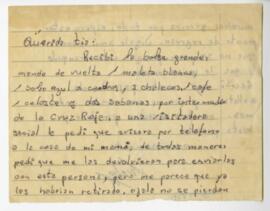 Querido tío:
Recibí la bolsa grande,
mando de vuelta 1 maleta blanca,
1 bolso azul a cuadros, 2 chalecos, 1 café
1 celeste y dos sabanas por intermedio
de la Cruz Roja, a una visitadora
social le pedí que avisara por teléfono
a la casa de mi mamá, de todas maneras
pedí que me los devolvieran para enviarlos
con esta persona, pero me parece que ya
los habían retirado, ojalá no se pierdan